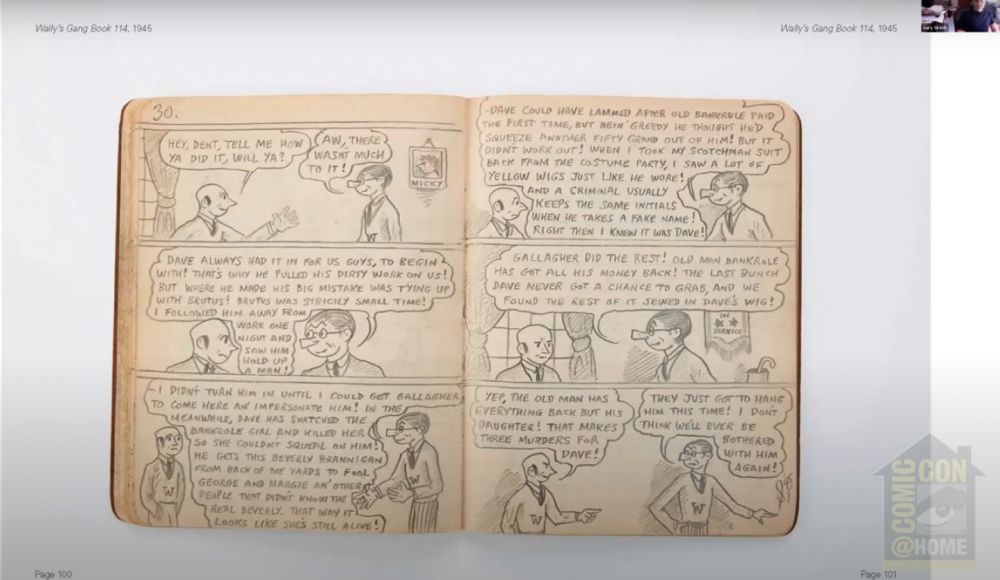 Wally's Gang Book 114, 1945
Wally's Gang Book 114, 1945
30.
HEY, DENT, TELL ME HOW
YA DID IT, WILL YA?
AW, THERE
WASNT MUCH
TO IT!
MICKY
W
DAVE ALWAYS HAD IT IN FOR US GUYS, TO BEGIN
WITH! THAT'S WHY HE PULLED HIS DIRTY WORK ON US!
BUT WHERE HE MADE HIS BIG MISTAKE WAS TYING UP
WITH BRUTUS! BRUTUS WAS STRICLY SMALL TIME!
I FOLLOWED HIM AWAY FROM
WORK ONE
NIGHT AND
SAW HIM
HOLD UP
A MAN!
-I DIDN'T TURN HIM IN UNTIL I COULD GET GALLAGHER
TO COME HERE AN' IMPERSONATE HIM! IN THE
MEANWHILE, DAVE HAS SNATCHED THE
BANKROLE GIRL AND KILLED HER
SO SHE COULDNT SQUEAL ON HIM!
HE GETS THIS BEVERLY BRANNIGAN
FROM BACK OF THE YARDS TO FOOL
GEORGE AND MARGIE AN' OTHER
PEOPLE THAT DIDN'T KNOW THE
REAL BEVERLY. THAT WAY IT
LOOKS LIKE SHE'S STILL ALIVE!
W
W
-DAVE COULD HAVE LAMMED AFTER OLD BANKROLE PAID
THE FIRST TIME, BUT BEIN' GREEDY HE THOUGHT HE'D
SQUEEZE ANOTHER FIFTY GRAND OUT OF HIM! BUT IT
DIDN'T WORK OUT! WHEN I TOOK MY SCOTCHMAN SUIT
BACK FROM THE COSTUME PARTY, I SAW A LOT OF
YELLOW WIGS JUST LIKE HE WORE!
AND A CRIMINAL USUALLY
KEEPS THE SAME INITIALS
WHEN HE TAKES A FAKE NAME!
RIGHT THEN I KNEW IT WAS DAVE!
GALLAGHER DID THE REST! OLD MAN BANKROLE
HAS GOT ALL HIS MONEY BACK! THE LAST BUNCH
DAVE NEVER GOT A CHANCE TO GRAB, AND WE
FOUND THE REST OF IT SEWED IN DAVE'S WIG!
IN
SERVICE
YEP, THE OLD MAN HAS
EVERYTHING BACK BUT HIS
DAUGHTER! THAT MAKES
THREE MURDERS FOR
DAVE!
THEY JUST GOT TO HANG
HIM THIS TIME! I DON'T
THINK WE'LL EVER BE
BOTHERED
WITH HIM
AGAIN!
W
W
Page 100
Page 101
COMIC
CON
@HOME